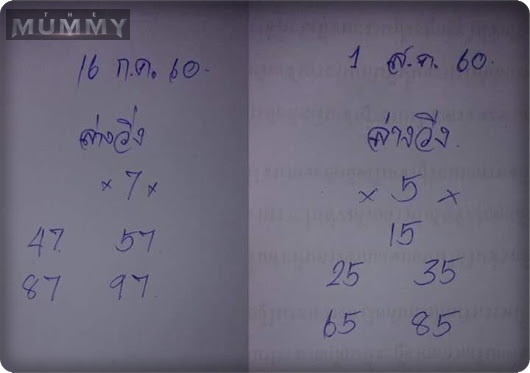 THE
MUMMY
16 ก.ค. 60.
ล่างวิ่ง
× 7 ×
47 57
87 97
1 ส.ค. 60.
ล่างวิ่ง
× 5 ×
15
25 35
65 85